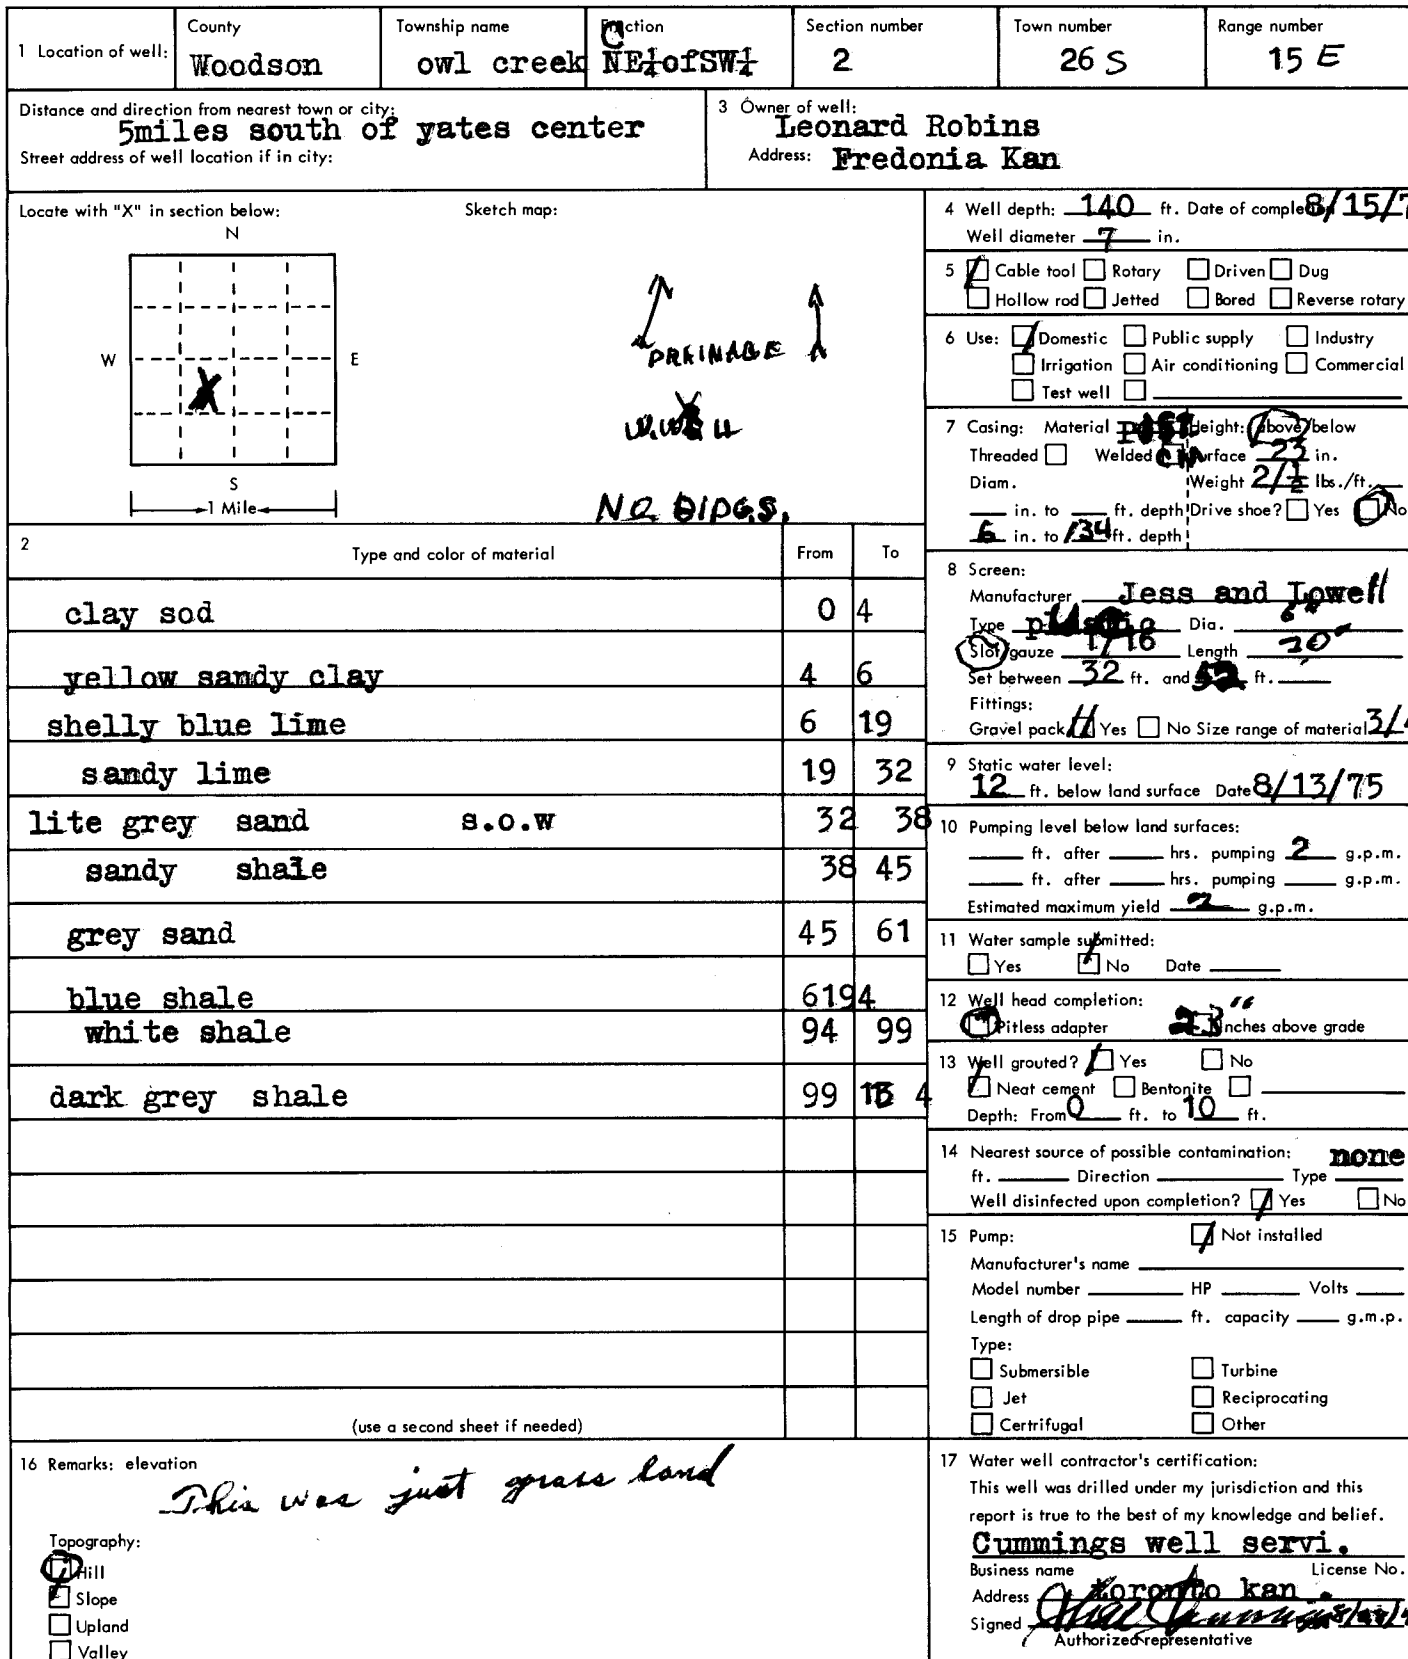 1 Location of well: County Woodson Township name owl creek Fraction C NE¼ofSW¼ Section number 2 Town number 26 S Range number 15 E
Distance and direction from nearest town or city: 5miles south of yates center
Street address of well location if in city:
3 Owner of well: Leonard Robins
Address: Fredonia Kan
Locate with "X" in section below: Sketch map:
N
W E
S
1 Mile
X
DRAINAGE
X
NO BIDGS.
2 Type and color of material From To
clay sod 0 4
yellow sandy clay 4 6
shelly blue lime 6 19
sandy lime 19 32
lite grey sand s.o.w 32 38
sandy shale 38 45
grey sand 45 61
blue shale 61 94
white shale 94 99
dark grey shale 99
(use a second sheet if needed)
4 Well depth: 140 ft. Date of completion 8/15/7
Well diameter 7 in.
5 Cable tool Rotary Driven Dug
Hollow rod Jetted Bored Reverse rotary
6 Use: Domestic Public supply Industry
Irrigation Air conditioning Commercial
Test well
7 Casing: Material Height: above/below
Threaded Welded Surface 23 in.
Diam. Weight 2/½ lbs./ft.
in. to ft. depth Drive shoe? Yes No
6 in. to 134 ft. depth
8 Screen:
Manufacturer Jess and Lowell
Type plastic Dia. 6"
Slot/gauze 1/16 Length 20"
Set between 32 ft. and 52 ft.
Fittings:
Gravel pack Yes No Size range of material 3/4
9 Static water level:
12 ft. below land surface Date 8/13/75
10 Pumping level below land surfaces:
ft. after hrs. pumping 2 g.p.m.
ft. after hrs. pumping g.p.m.
Estimated maximum yield 2 g.p.m.
11 Water sample submitted:
Yes No Date
12 Well head completion:
Pitless adapter 23" Inches above grade
13 Well grouted? Yes No
Neat cement Bentonite
Depth: From 0 ft. to 10 ft.
14 Nearest source of possible contamination: none
ft. Direction Type
Well disinfected upon completion? Yes No
15 Pump: Not installed
Manufacturer's name
Model number HP Volts
Length of drop pipe ft. capacity g.m.p.
Type:
Submersible Turbine
Jet Reciprocating
Certrifugal Other
16 Remarks: elevation
This was just grass land
Topography:
Hill
Slope
Upland
Valley
17 Water well contractor's certification:
This well was drilled under my jurisdiction and this
report is true to the best of my knowledge and belief.
Cummings well servi.
Business name License No.
Address toronto kan .
Signed
Authorized representative